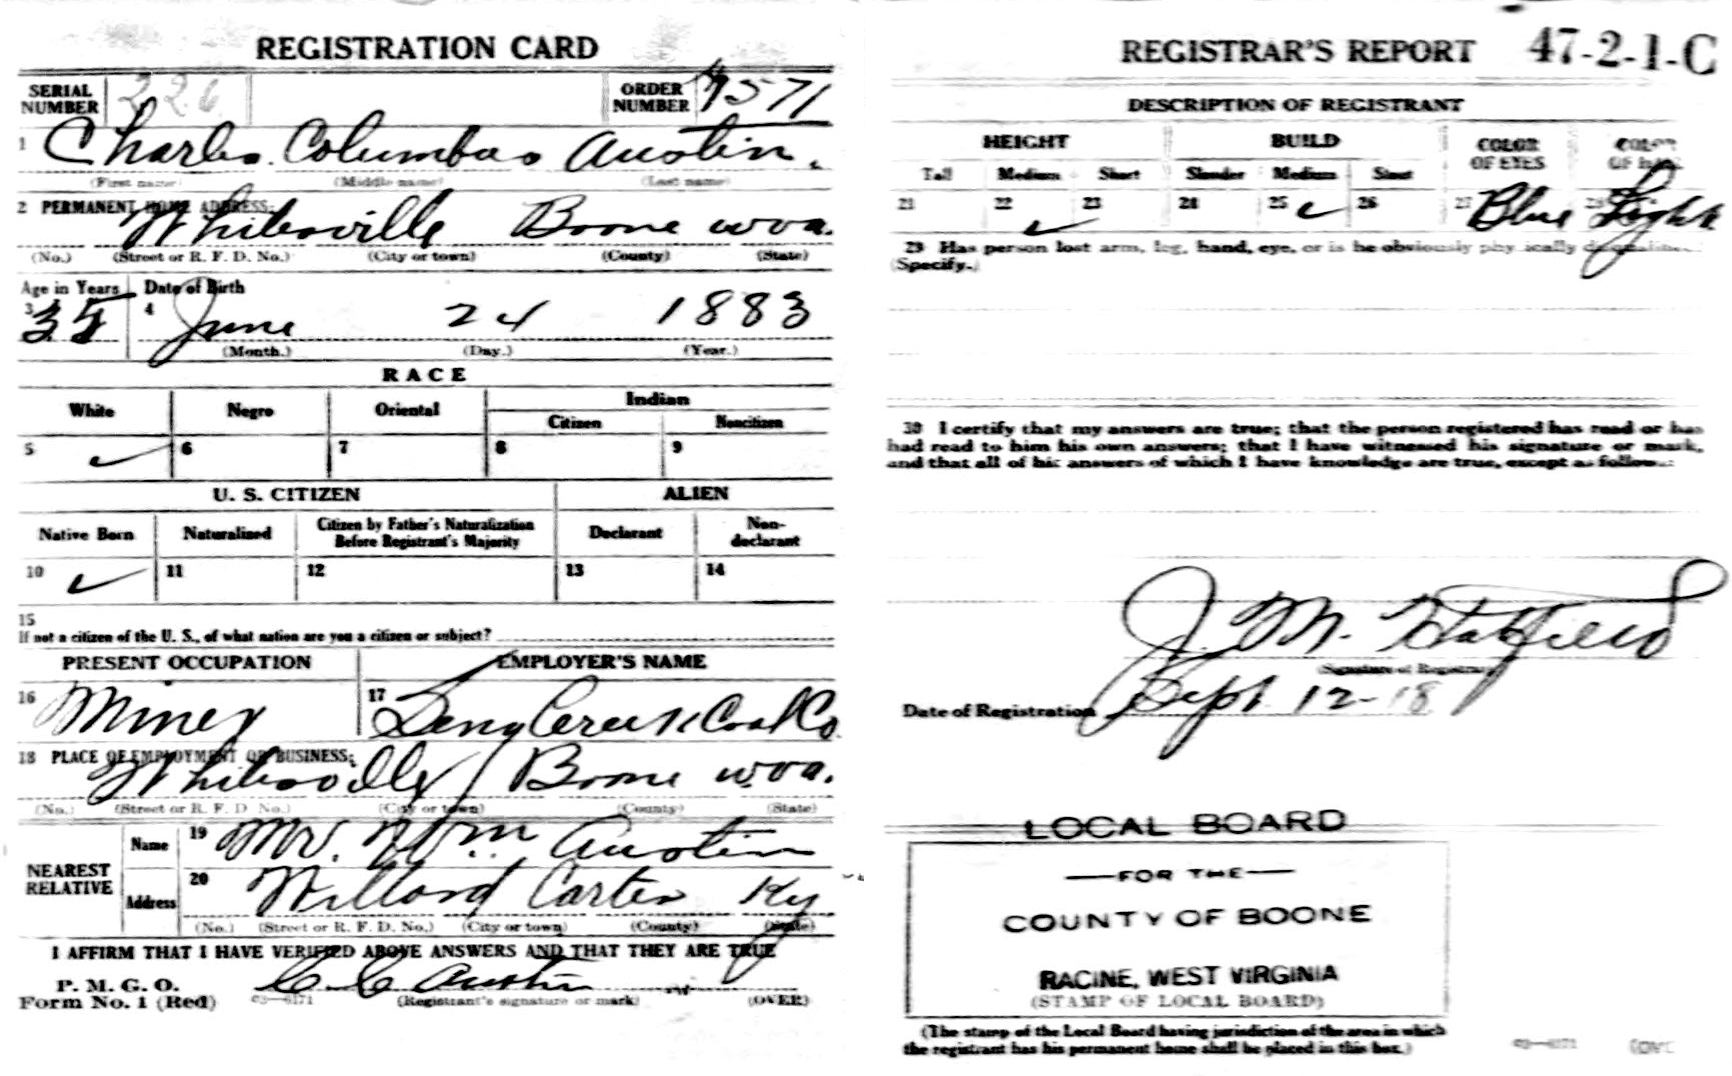 REGISTRATION CARD
SERIAL NUMBER 226 ORDER NUMBER 1571
1 Charles Columbus Austin.
(First name) (Middle name) (Last name)
2 PERMANENT HOME ADDRESS:
Whitesville Boone wva.
(No.) (Street or R. F. D. No.) (City or town) (County) (State)
Age in Years Date of Birth
3 35 4 June 24 1883
(Month.) (Day.) (Year.)
RACE
White Negro Oriental Indian
Citizen Noncitizen
5 ✓ 6 7 8 9
U. S. CITIZEN ALIEN
Native Born Naturalized Citizen by Father's Naturalization Before Registrant's Majority Declarant Non-declarant
10 ✓ 11 12 13 14
15
If not a citizen of the U. S., of what nation are you a citizen or subject?
PRESENT OCCUPATION EMPLOYER'S NAME
16 Miner 17 Creek Coal Co
18 PLACE OF EMPLOYMENT OR BUSINESS:
Whitesville Boone wva.
(No.) (Street or R. F. D. No.) (City or town) (County) (State)
NEAREST RELATIVE
Name 19 Mr. Wm Austin
Address 20 Willard Carter Ky
(No.) (Street or R. F. D. No.) (City or town) (County) (State)
I AFFIRM THAT I HAVE VERIFIED ABOVE ANSWERS AND THAT THEY ARE TRUE
P. M. G. O.
Form No. 1 (Red) 03—6171 C C Austin
(Registrant's signature or mark) (OVER)
REGISTRAR'S REPORT 47-2-1-C
DESCRIPTION OF REGISTRANT
HEIGHT BUILD COLOR OF EYES COLOR OF HAIR
Tall Medium Short Slender Medium Stout
21 22 ✓ 23 24 25 ✓ 26 27 Blue 28 Light
29 Has person lost arm, leg, hand, eye, or is he obviously physically disqualified?
(Specify.)
30 I certify that my answers are true; that the person registered has read or has
had read to him his own answers; that I have witnessed his signature or mark,
and that all of his answers of which I have knowledge are true, except as follows:
J. M. Hatfield
(Signature of Registrar)
Date of Registration Sept. 12-18
LOCAL BOARD
—FOR THE—
COUNTY OF BOONE
RACINE, WEST VIRGINIA
(STAMP OF LOCAL BOARD)
(The stamp of the Local Board having jurisdiction of the area in which
the registrant has his permanent home shall be placed in this box.)
03—6171 (OVE